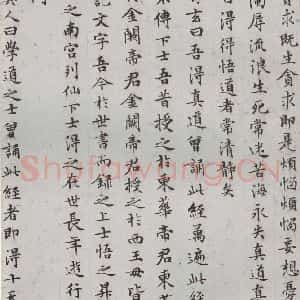 貪求既生貪求即是煩惱煩惱妄想憂
濁辱流浪生死常沈苦海永失真道真
自得得悟道者常清靜矣
玄曰吾得真道曾誦此經萬遍此經
不傳下士吾昔授之於東華帝君東華
於金闕帝君金闕帝君授之於西王母皆
記文字吾今於世書而錄之上士悟之昇
之南宮列仙下士得之在世長年遊行
真人曰學道之士曾誦此經者即得十
Shufawang.CN